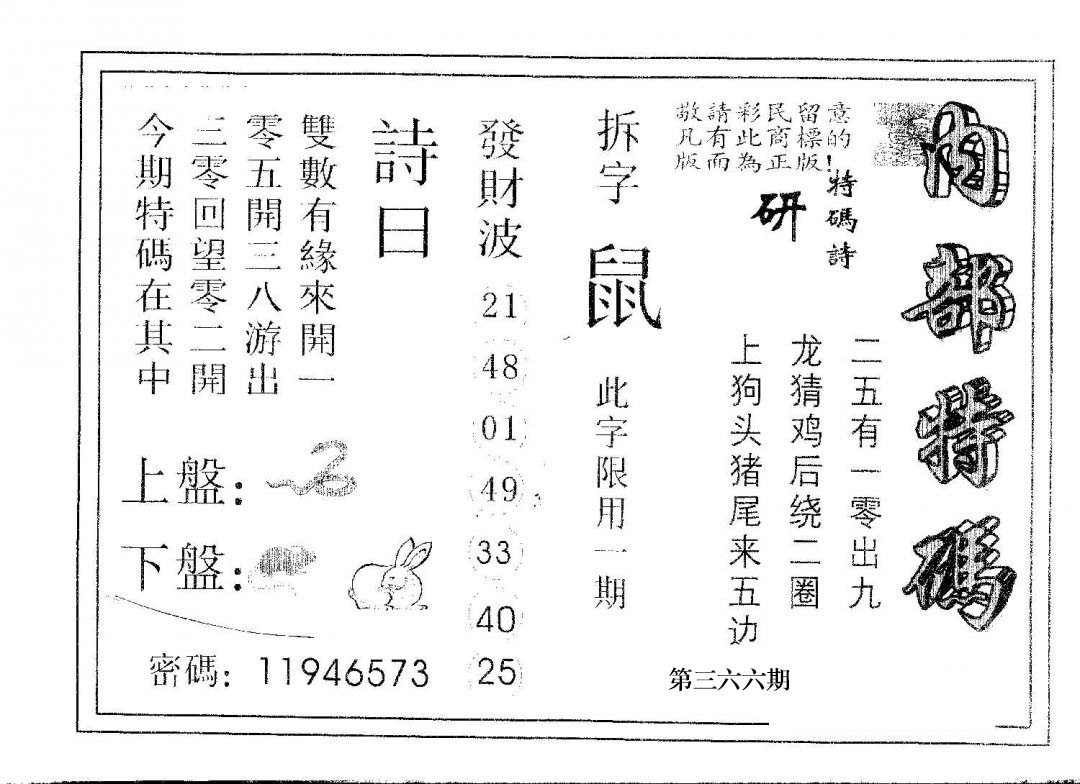 内部特碼
敬請彩民留意
凡有此商標的
版而為正版!
特碼詩
研
二五有一零出九
龙猜鸡后绕二圈
上狗头猪尾来五边
第三六六期
拆字
鼠
此字限用一期
發財波
21
48
01
49
33
40
25
詩曰
雙數有緣來開一
零五開三八游出
三零回望零二開
今期特碼在其中
上盤:
下盤:
密碼: 11946573